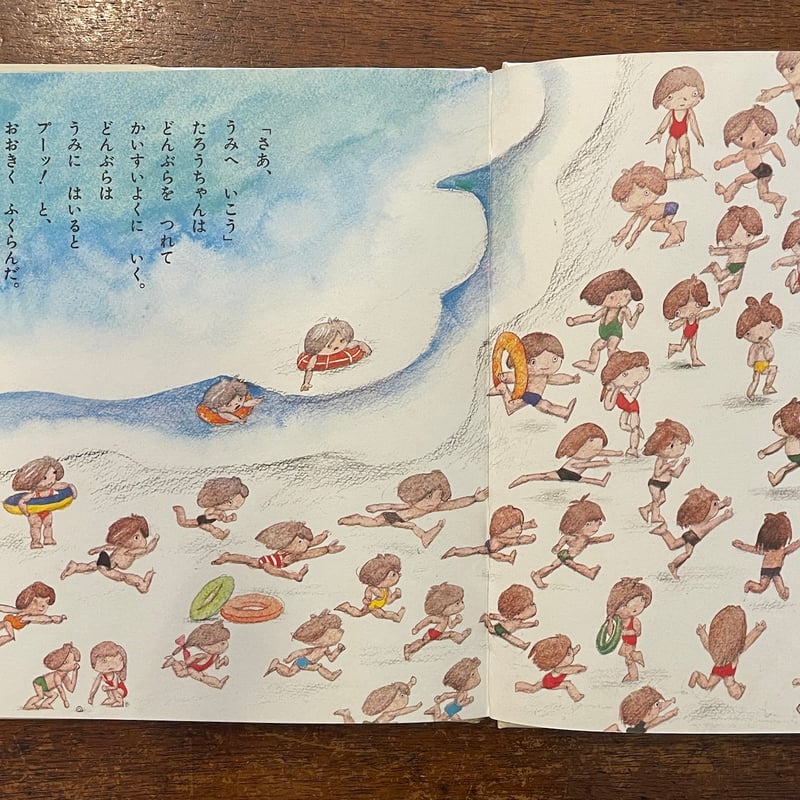 「さあ、
うみへ いこう」
たろうちゃんは
どんぶらを つれて
かいすいよくに いく。
どんぶらは
うみに はいると
プーッ! と、
おおきく ふくらんだ。